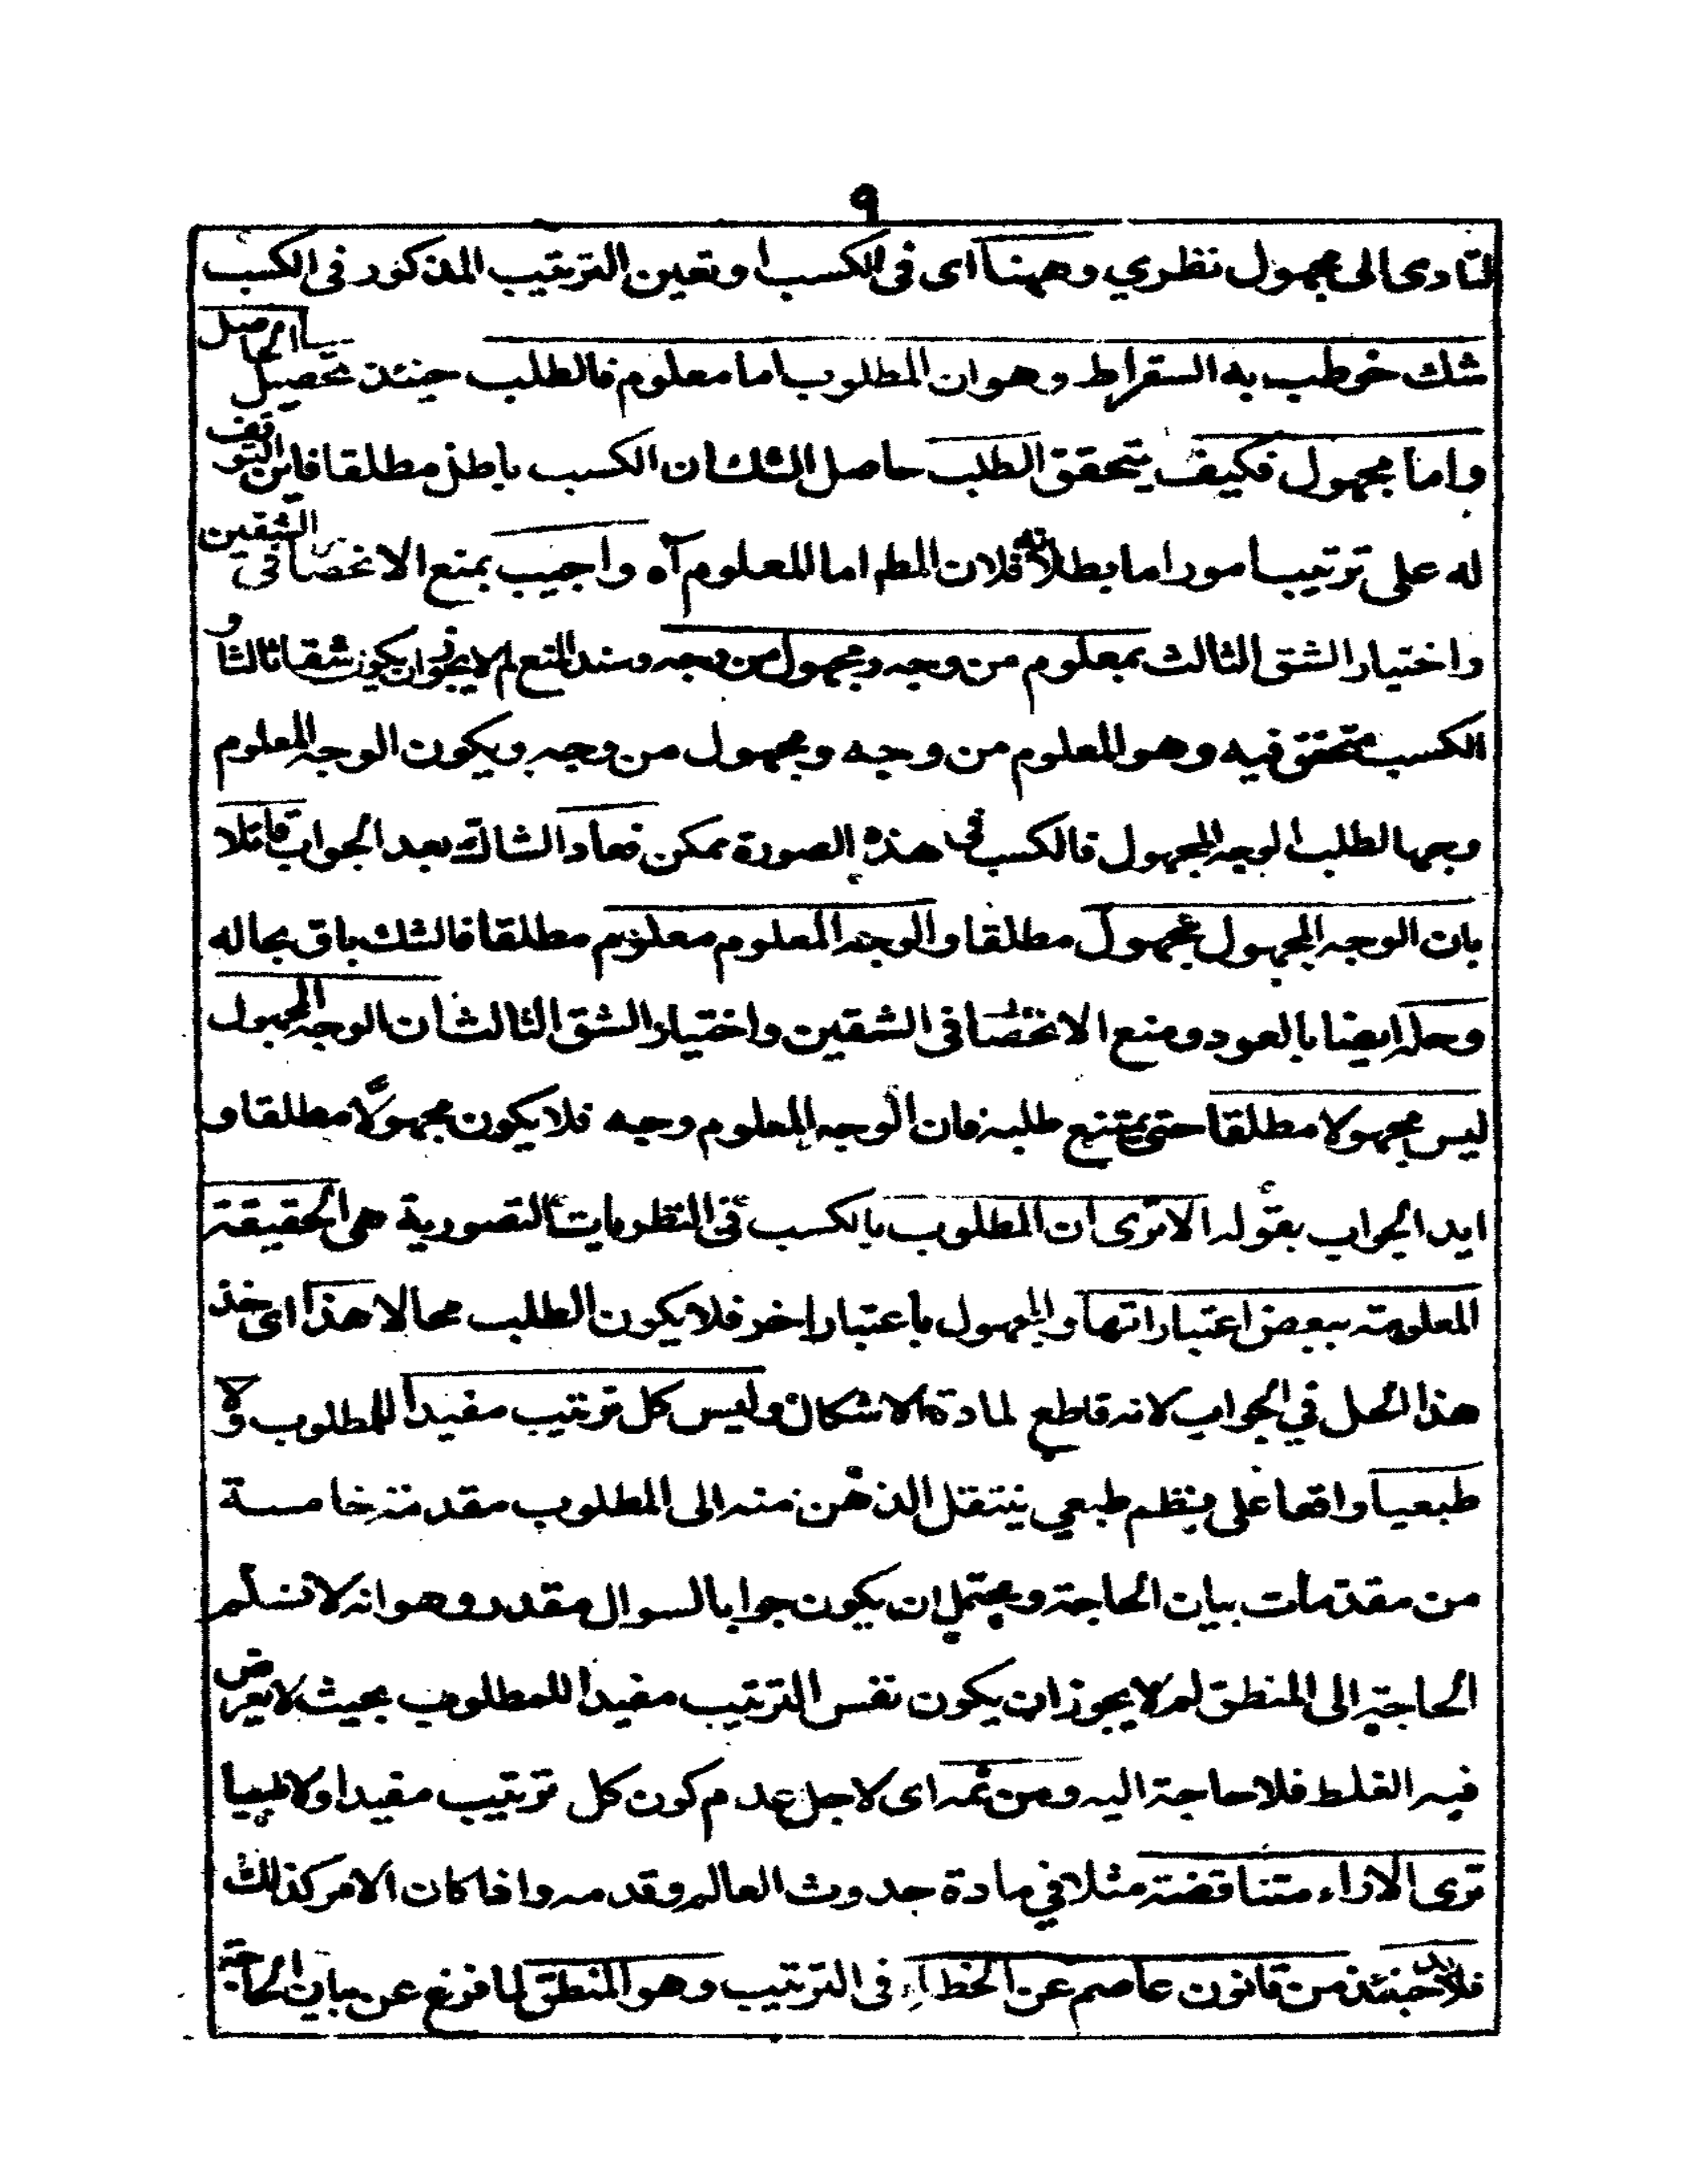 ٩
لتادى الى مجهول نظري وههنا اى فى الكسب او تعين الترتيب المذكور فى الكسب
شك خوطب به السقراط وهو ان المطلوب اما معلوم فالطلب حينئذ تحصيل الحاصل
واما مجهول فكيف يتحقق الطلب حاصل الشك ان الكسب باطل مطلقا فاين التوقف
له على ترتيب امور اما بطلانه فلان المط اما المعلوم آه واجيب بمنع الانحصا فى الشقين
واختيار الشق الثالث بمعلوم من وجه ومجهول من وجه وسند المنع لم لا يجوز ان يكون شقا ثالثا و
الكسب متحقق فيه وهو المعلوم من وجه ومجهول من وجه ويكون الوجه المعلوم
وجها لطلب الوجه المجهول فالكسب فى هذه الصورة ممكن فعاد الشاك بعد الجواب قائلا
بان الوجه المجهول مجهول مطلقا والوجه المعلوم معلوم مطلقا فالشك باق بحاله
وحله ايضا بالعود ومنع الانحصا فى الشقين واختيار الشق الثالث ان الوجه المجهول
ليس مجهولا مطلقا حتى يمتنع طلبه فان الوجه المعلوم وجهه فلا يكون مجهولا مطلقا و
ايد الجواب بقوله الا ترى ان المطلوب بالكسب فى النظريات التصورية هى الحقيقة
المعلومة ببعض اعتباراتها والمجهول باعتبار اخر فلا يكون الطلب محالا هذا اى خذ
هذا الحل في الجواب لانه قاطع لمادة الاشكال وليس كل ترتيب مفيدا للمطلوب ولا
طبعيا واقعا على نظم طبعي ينتقل الذهن منه الى المطلوب مقدمة خامسة
من مقدمات بيان الحاجة ويحتمل ان يكون جوابا لسوال مقدر وهو انه لا نسلم
الحاجة الى المنطق لم لا يجوز ان يكون نفس الترتيب مفيدا للمطلوب بحيث لا يعرض
فيه الغلط فلا حاجة اليه ومن ثمه اى لاجل عدم كون كل ترتيب مفيدا ولا طبعيا
ترى الاراء متناقضة مثلا في مادة حدوث العالم وقدمه واذا كان الامر كذلك
فلا بد حينئذ من قانون عاصم عن الخطاء فى الترتيب وهو المنطق لما فرغ عن بيان الحاجة